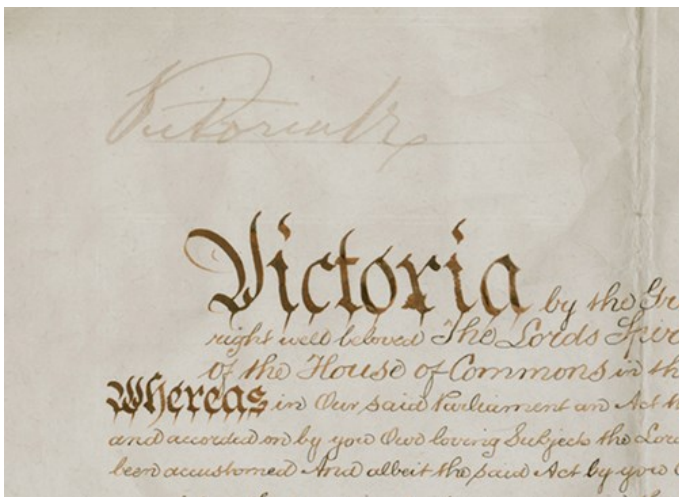 Victoria R
Victoria by the Gr
right well beloved The Lords Spir
of the House of Commons in th
Whereas in Our said Parliament an Act h
and accorded on by you Our loving Subjects the Lord
been accustomed And albeit the said Act by you